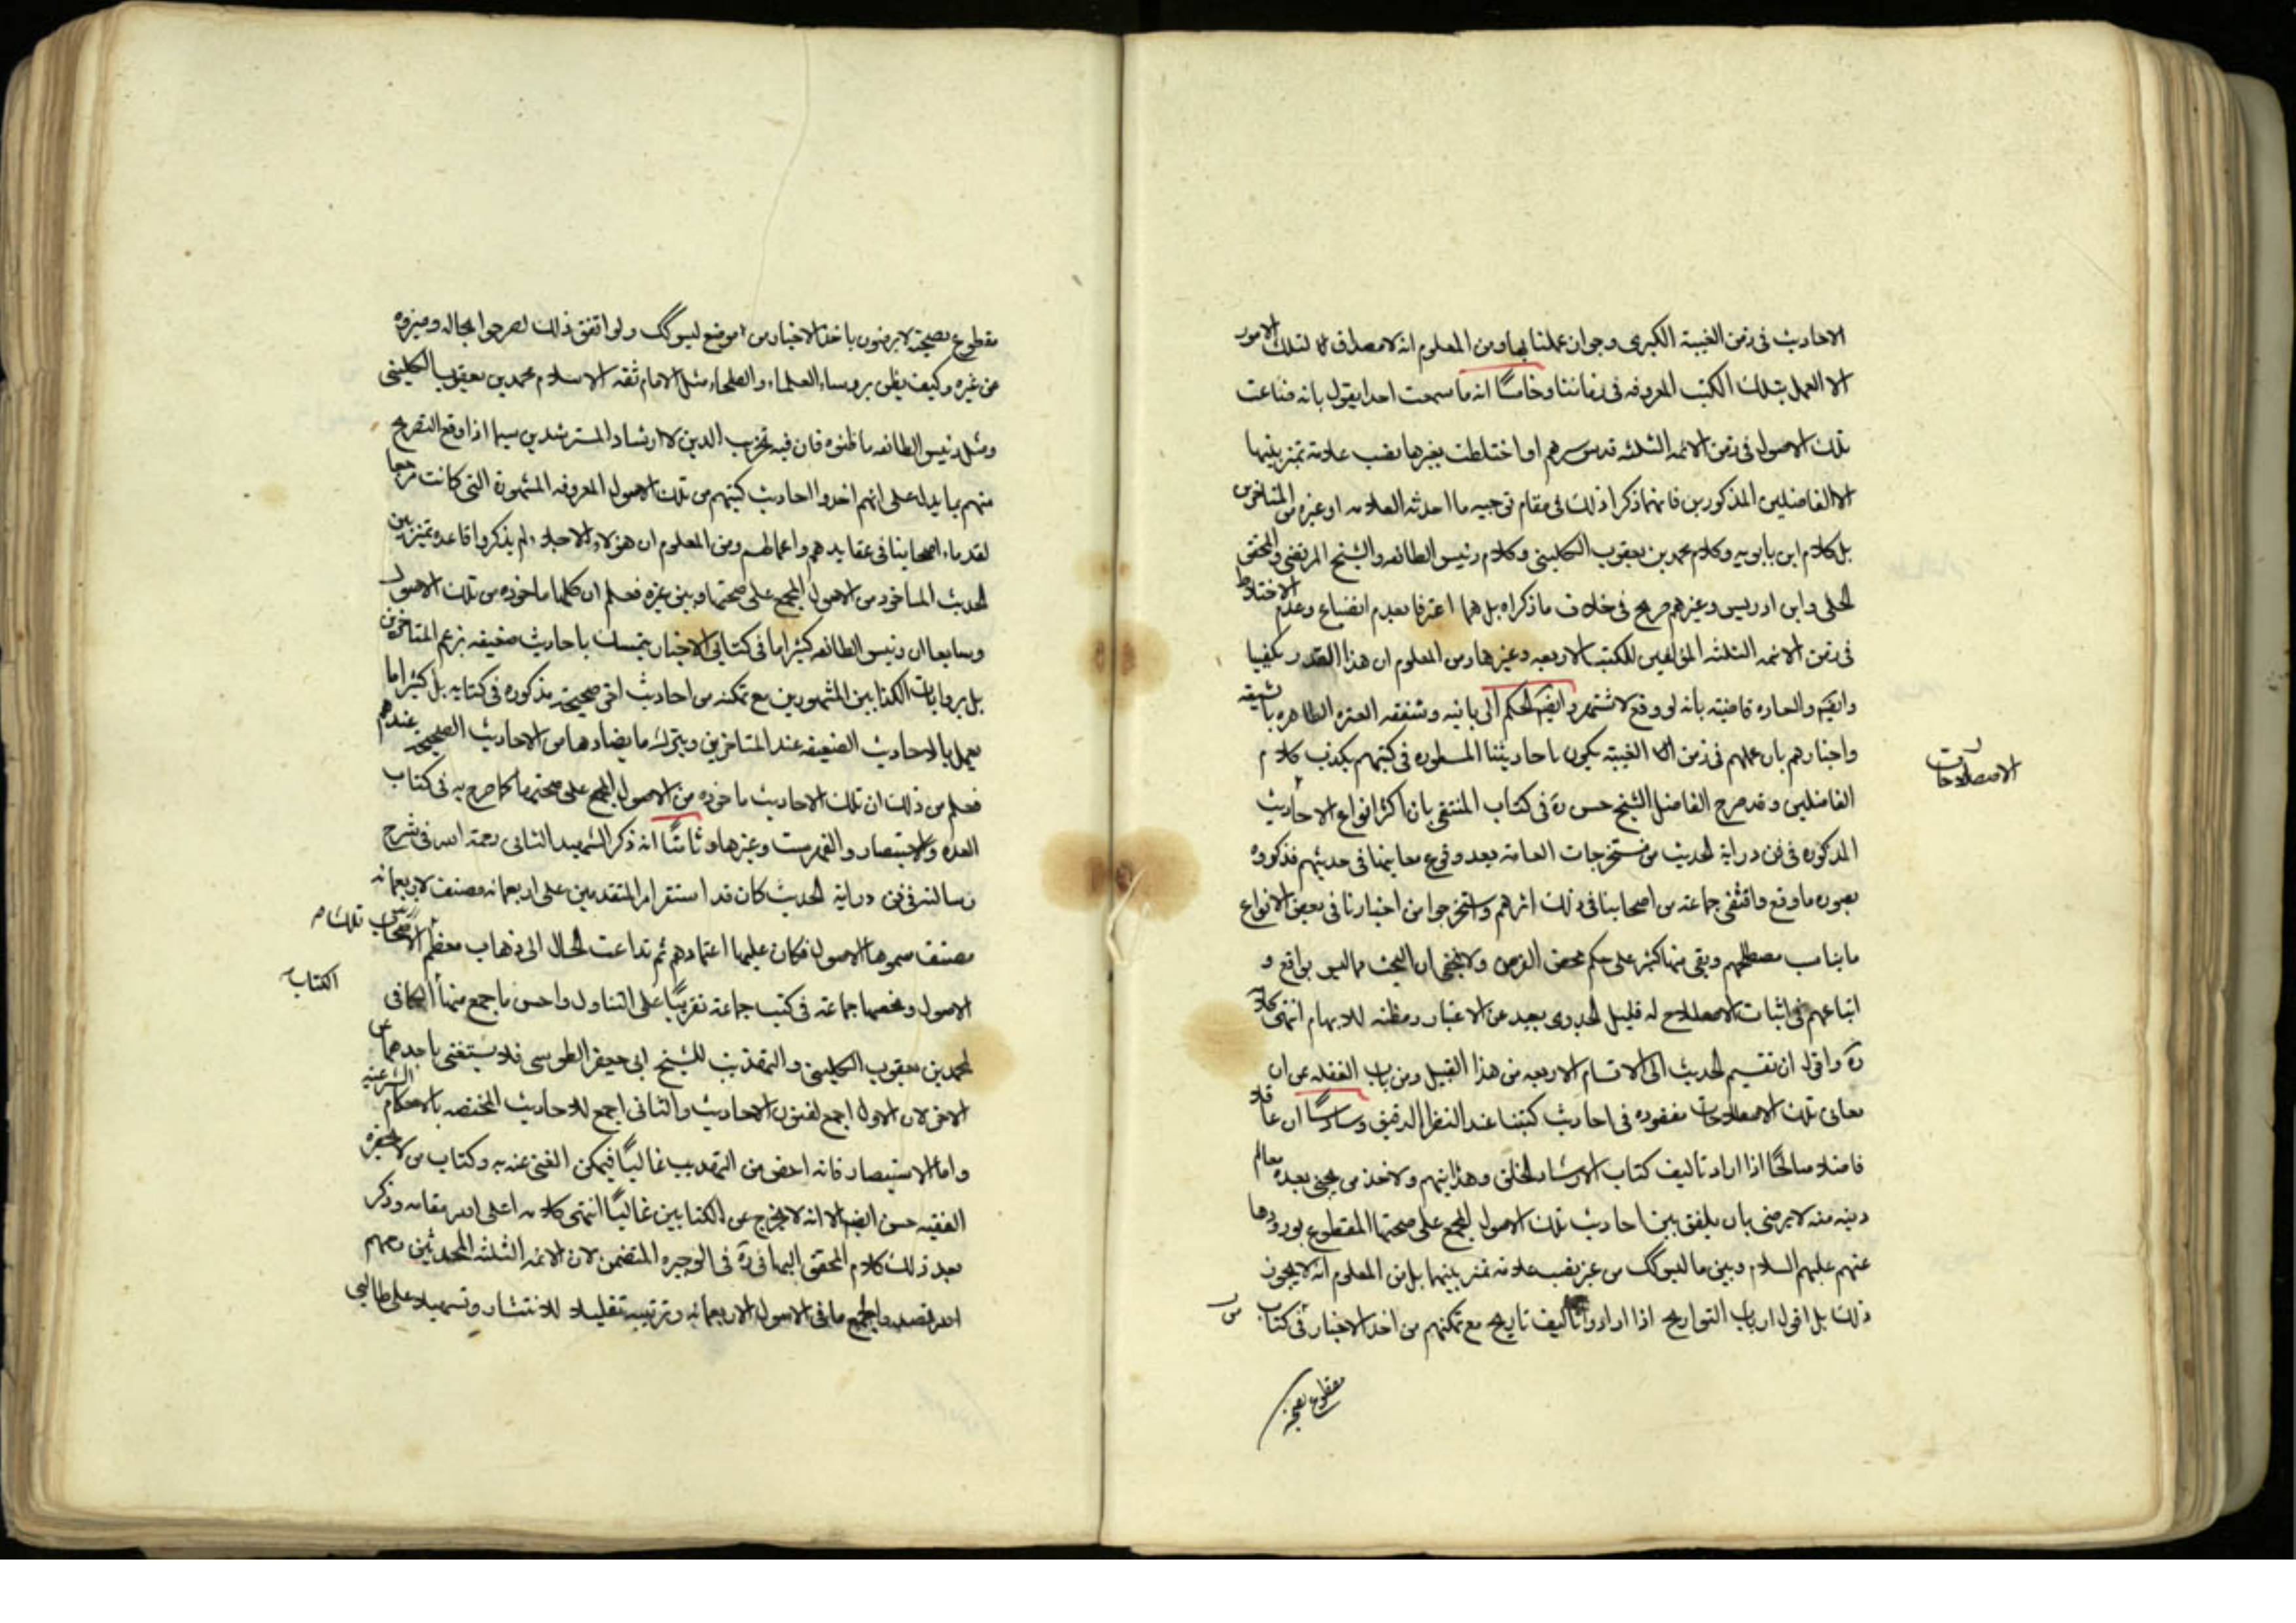 الاحاديث فى زمن الغيبة الكبرى وجواز عملنا بها ومن المعلوم انه لا مصداق لتلك الامور
الا العمل بتلك الكتب المعروفه فى زماننا وخامسًا انه ما سمعت احدا يقول بانه ضاعت
تلك الاصول فى زمن الائمه الثلثه قدس سرهم او اختلطت بغيرها بنصب علامة تميز بينها
الا الفاضلين المذكورين فانهما ذكرا ذلك فى مقام توجيه ما احدثه العلامه او غيره من المتاخرين
بل كلام ابن بابويه وكلام محمد بن يعقوب الكلينى وكلام رئيس الطائفه والشيخ المرتضى والمحقق
الحلى وابن ادريس وغيرهم صريح فى خلاف ما ذكراه بل هما اعترفا بعدم انضياع وعدم الاختلاط
فى زمن الائمه الثلثه المؤلفين للكتب الاربعه وغيرها ومن المعلوم ان هذا القدر يكفينا
وايضا والعاده قاضية بانه لو وقع لاشتهر وايضا الحكم الربانيه وشفقه العترة الطاهره بالشيعه
واخبارهم بان عملهم فى زمن الغيبة يكون باحاديثنا المسطوره فى كتبهم يكذب كلام
الفاضلين وقد صرح الفاضل الشيخ حسن ره فى كتاب المنتقى بان اكثر انواع الاحاديث
المذكوره فى فن دراية الحديث من مستخرجات العامه بعد وقوع معانيها فى حديثهم فذكروه
بصورة ما وقع واقتفى جماعة من اصحابنا فى ذلك اثرهم واستخرجوا من اخبارنا فى بعض الانواع
ما يناسب مصطلحهم وبقى منها كثير على حكم محض الفرض ولا يخفى ان البحث عما ليس بواقع و
اتباعهم فى اثبات الاصطلاح له قليل الجدوى بعيد عن الاعتبار ومظنه للابهام انتهى كلامه
ره واقول ان تقسيم الحديث الى الاقسام الاربعه من هذا القبيل ومن باب الغفله عن ان
معانى تلك الاصطلاحات مفقوده فى احاديث كتبنا عند النظر الدقيق وسادسًا ان عاقلا
فاضلا صالحًا اذا اراد تاليف كتاب الارشاد الخلق وهدايتهم ولاخذ من يجئ بعده معالم
دينه منه لا يرضى بان يلفق بين احاديث تلك الاصول المجمع على صحتها المقطوع بورودها
عنهم عليهم السلام وبين ما ليس كك من غير نصب علامة تميز بينهما بل من المعلوم انه لا يجوز
ذلك بل اقول ارباب التواريخ اذا ارادوا تاليف تاريخ مع تمكنهم من اخذ الاخبار فى كتاب
مقطوع بصحته
الاصطلاحات
مقطوع بصحته لا يرضون باخذ الاخبار من موضع ليس كك ولو اتفق ذلك لصرحوا بحاله وميزوه
عن غيره وكيف يظن بروساء العلماء والصلحاء مثل الامام ثقه الاسلام محمد بن يعقوب الكلينى
ومثل رئيس الطائفه ما ظنوه فان فيه تخريب الدين لا ارشاد المسترشدين سيما اذا وقع التصريح
منهم بما يدل على انهم اخذوا احاديث كتبهم من تلك الاصول المعروفه المشهورة التى كانت مرجعا
لقدماء اصحابنا فى عقايدهم واعمالهم ومن المعلوم ان هؤلاء الاجلاء لم يذكروا قاعده تميز بين
الحديث الماخوذ من الاصول المجمع على صحتها وبين غيره فعلم ان كلها ماخوذه من تلك الاصول
وسابعا ان رئيس الطائفه كثيرا ما فى كتابى الاخبار يتمسك باحاديث ضعيفه بزعم المتاخرين
بل بروايات الكذابين المشهورين مع تمكنه من احاديث اخر صحيحة مذكوره فى كتابه بل كثيرا ما
يعمل بالاحاديث الضعيفه عند المتاخرين ويترك ما يضادها من الاحاديث الصحيحه عندهم
فعلم من ذلك ان تلك الاحاديث ماخوذه من الاصول المجمع على صحتها كما صرح به فى كتاب
العده والاستبصار والفهرست وغيرها وثامنًا انه ذكر الشهيد الثانى رحمة الله فى شرح
رسالته فى فن دراية الحديث كان قد استقر امر المتقدمين على اربعمائه مصنف لاربعمائه
مصنف سموها الاصول فكان عليها اعتمادهم ثم تداعت الحال الى ذهاب معظم تلك
الاصول ولخصها جماعة فى كتب جماعة تقريبًا على التناول واحسن ما جمع منها الكافى
لمحمد بن يعقوب الكلينى والتهذيب للشيخ ابى جعفر الطوسى فلا يستغنى باحدهما عن
الاخر لان الاول اجمع لفنون الاحاديث والثانى اجمع للاحاديث المختصه بالاحكام الشرعيه
واما الاستبصار فانه اخص من التهذيب غالبًا فيمكن الغنى عنه به وكتاب من لا يحضره
الفقيه حسن ايضا الا انه لا يخرج عن الكتابين غالبًا انتهى كلامه اعلى الله مقامه وذكر
بعد ذلك كلام المحقق البهائى ره فى الوجيزه المتضمن لان الائمه الثلثه المحمدثين رحمهم
الله تصدوا لجمع ما فى الاصول الاربعمائه وترتيبه تقليلا للانتشار وتسهيلا على طالبى
الكتاب